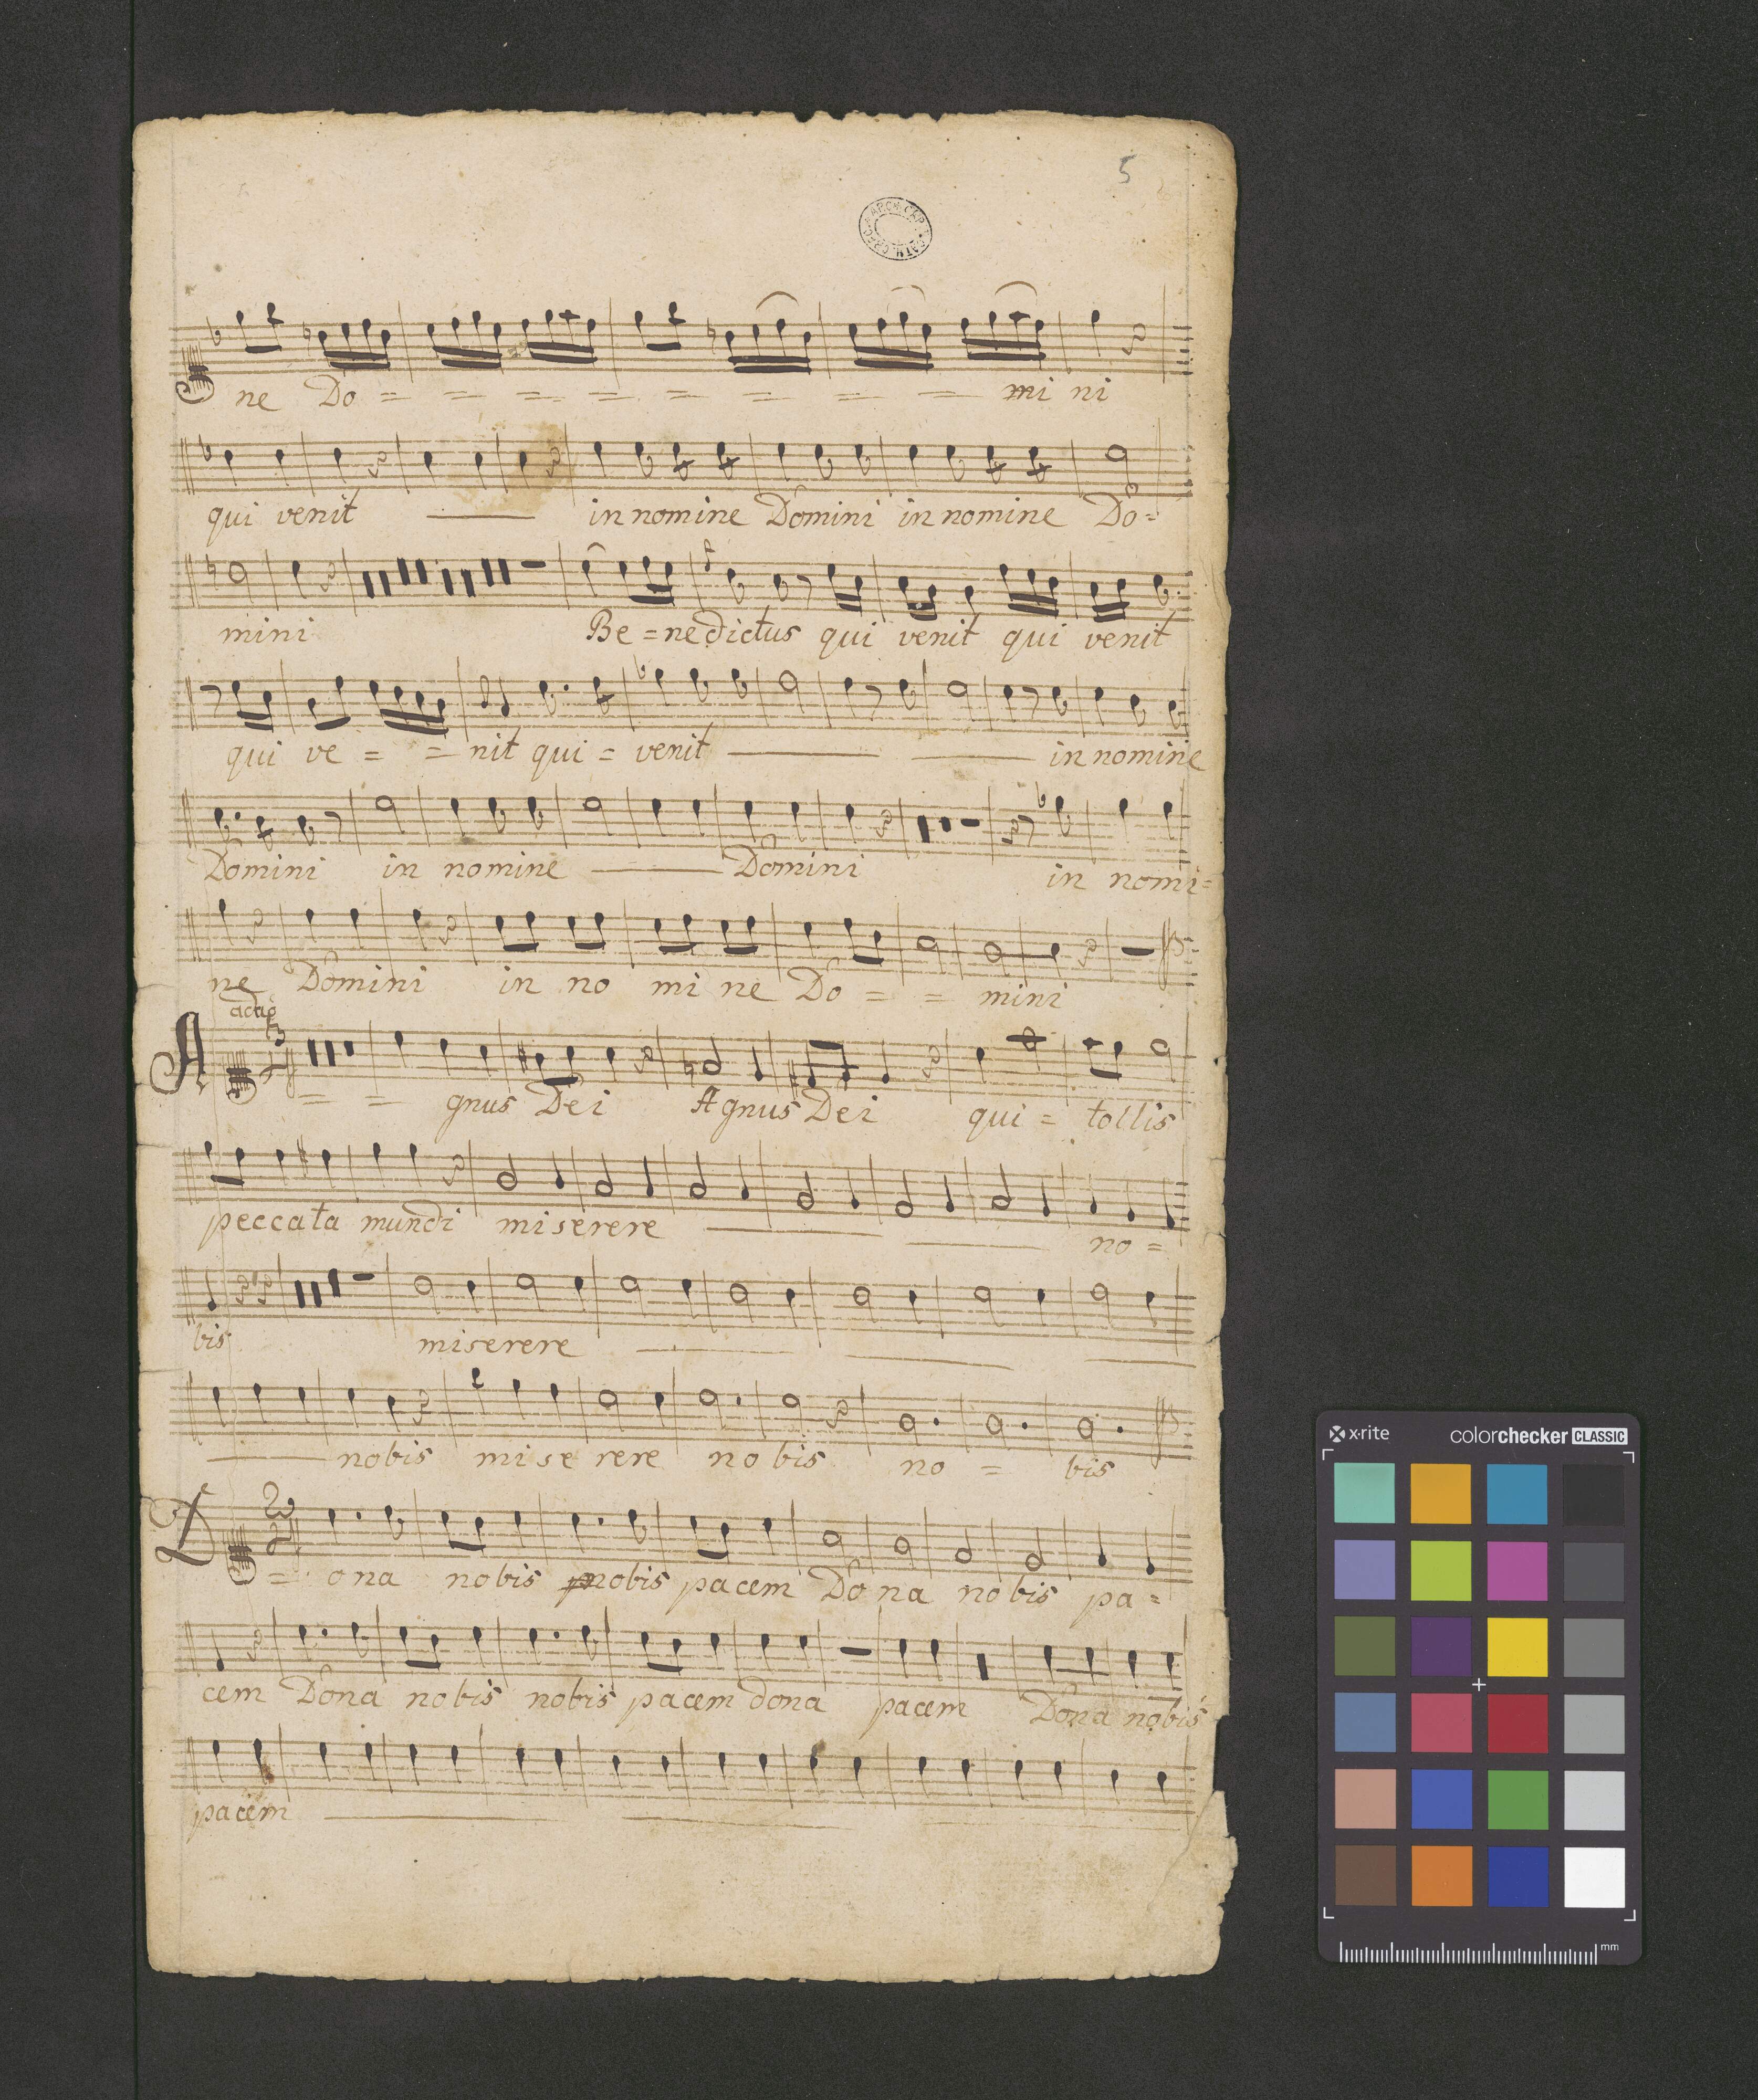 5
ARCH. CAP.
ne Do = = = = = = = = mi ni
qui venit in nomine Domini in nomine Do =
mini Be = nedictus qui venit qui venit
qui ve = = nit qui = venit in nomine
Domini in nomine Domini in nomi =
ne Domini in no mi ne Do = = mini
adag
A = = gnus Dei Agnus Dei qui = tollis
peccata mundi miserere no =
bis miserere
nobis mi se rere nobis no = bis
D = ona nobis nobis pacem Dona nobis pa =
cem Dona nobis nobis pacem dona pacem Dona nobis
pacem
x-rite colorchecker CLASSIC
mm